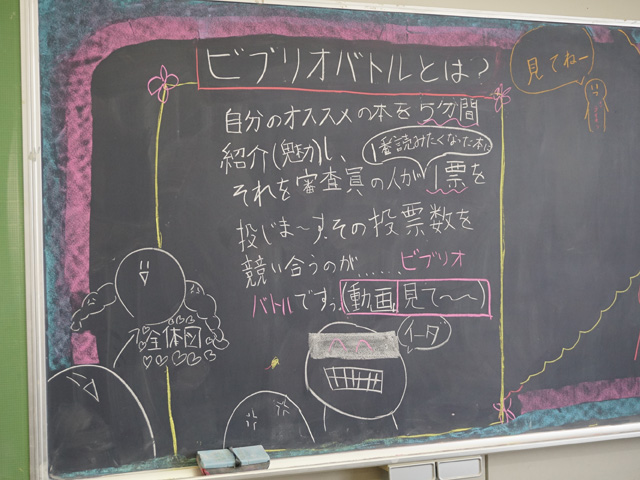 ビブリオバトルとは?
見てねー
自分のオススメの本を5分間
紹介(魅力)し、
1番読みたくなった本に
それを審査員の人が1票を
投じま〜す。その投票数を
競い合うのが……ビブリオ
バトルですっ。(動画見て〜〜)
全体図
イーダ